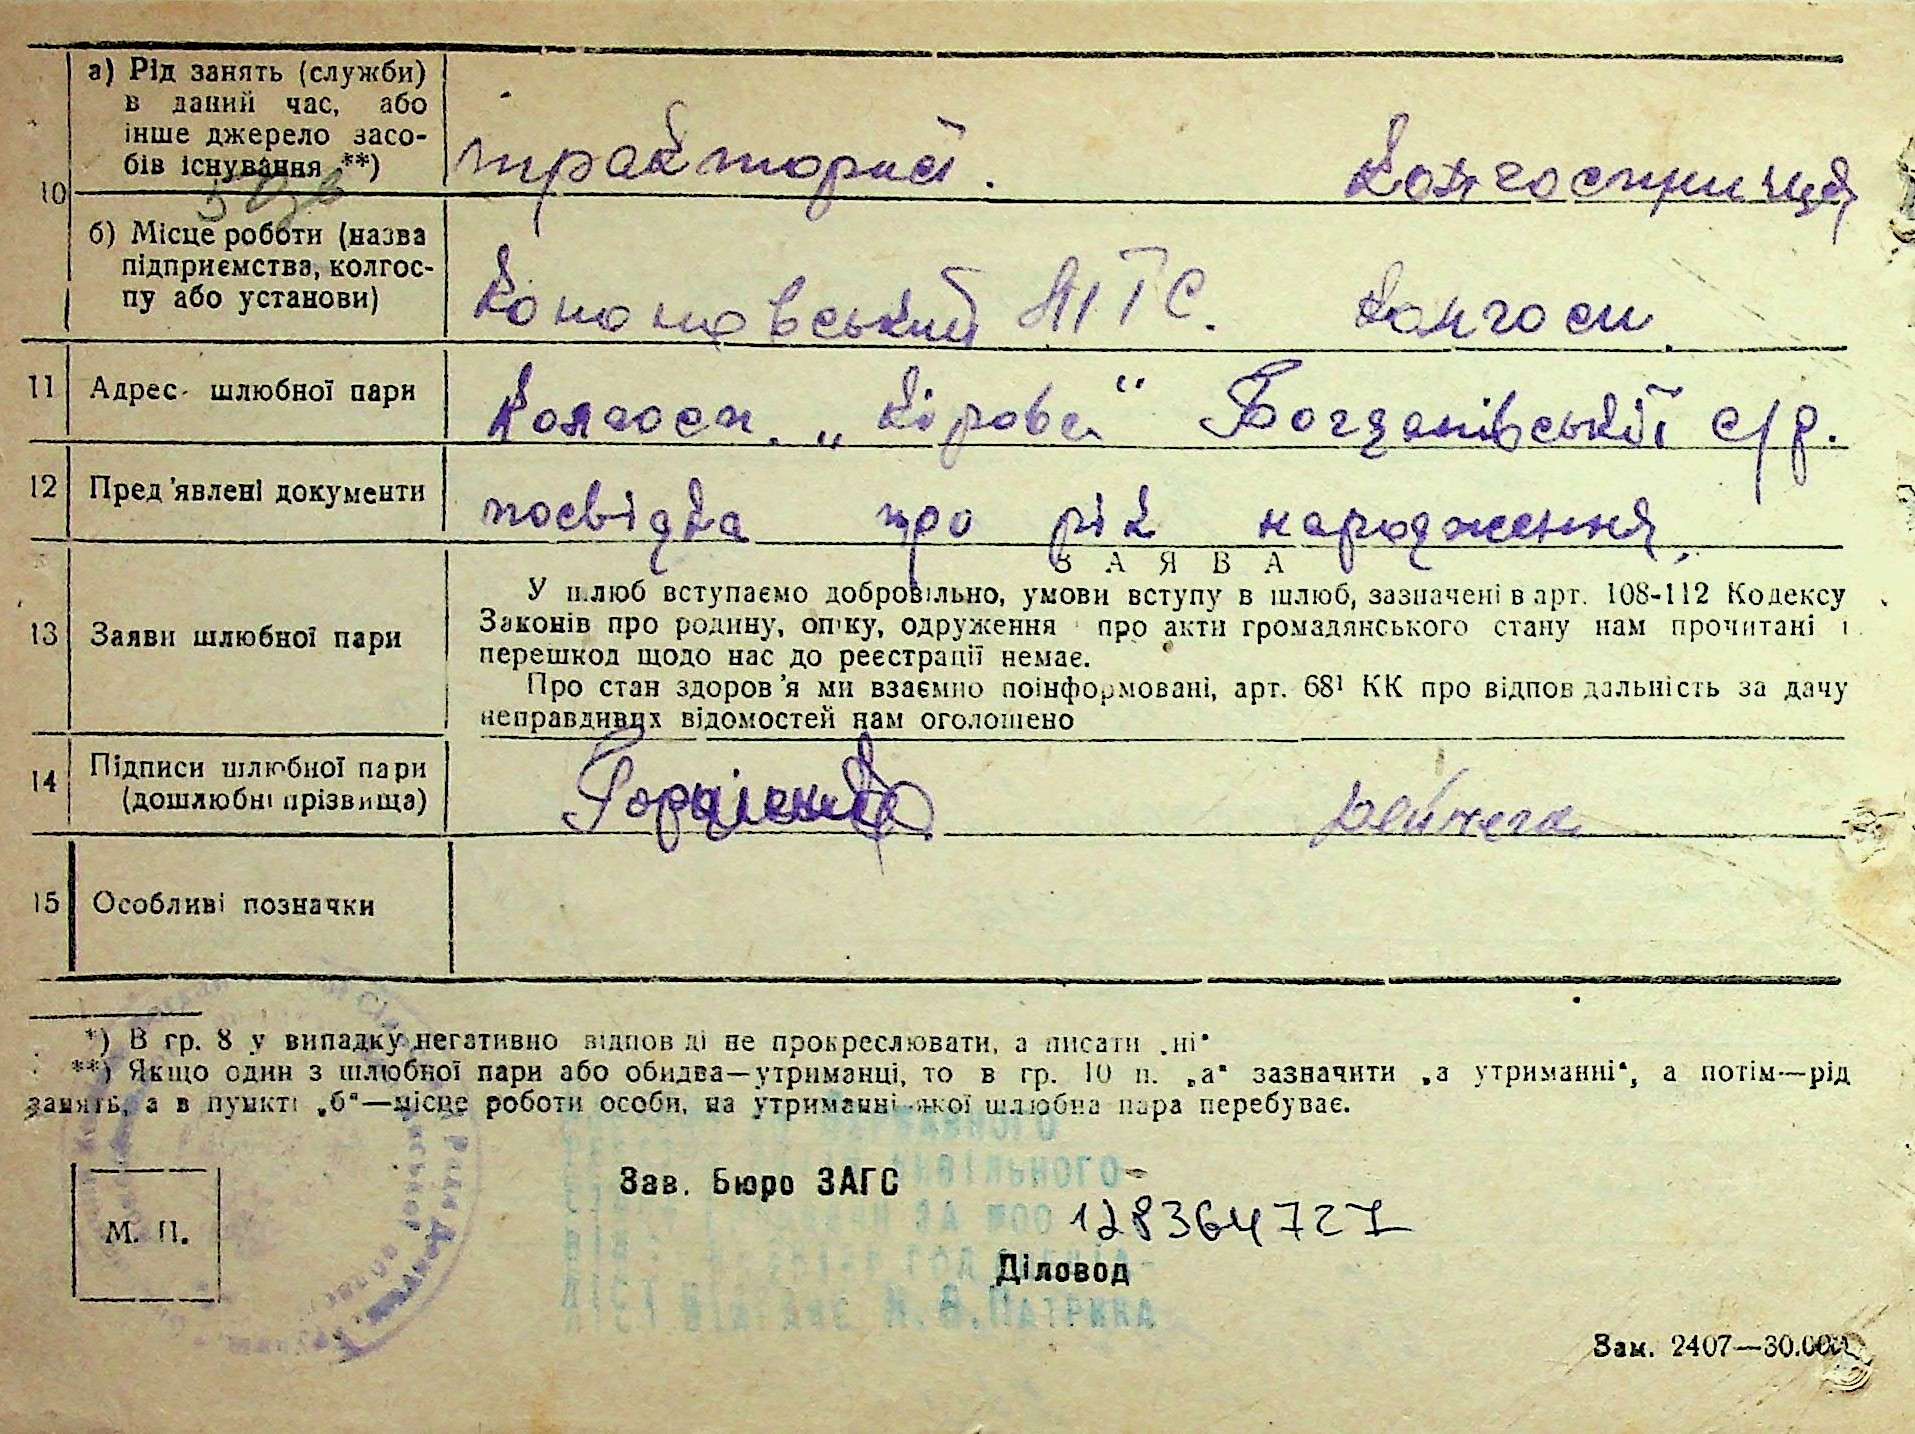 10
а) Рід занять (служби)
в даний час, або
інше джерело засо-
бів існування **)
тракторист. Колгоспниця
б) Місце роботи (назва
підприємства, колгос-
пу або установи)
Кононовський МТС. Колгосп.
11 Адрес шлюбної пари
Колгосп. „Кірова“ Богданівській с/р.
12 Пред'явлені документи
посвідка про рік народження.
ЗАЯВА
13 Заяви шлюбної пари
У шлюб вступаємо добровільно, умови вступу в шлюб, зазначені в арт. 108-112 Кодексу
Законів про родину, опіку, одруження про акти громадянського стану нам прочитані і
перешкод щодо нас до реєстрації немає.
Про стан здоров'я ми взаємно поінформовані, арт. 68¹ КК про відповідальність за дачу
неправдивих відомостей нам оголошено
14 Підписи шлюбної пари
(дошлюбні прізвища)
Гордієнко
15 Особливі позначки
*) В гр. 8 у випадку негативно відпов ді не прокреслювати, а писати „ні“
**) Якщо один з шлюбної пари або обидва—утриманці, то в гр. 10 п. „а“ зазначити „а утриманні“, а потім—рід
занять, а в пункті „б“—місце роботи особи, на утриманні якої шлюбна пара перебуває.
Зав. Бюро ЗАГС
128364727
М. П.
Діловод
Зам. 2407—30.000